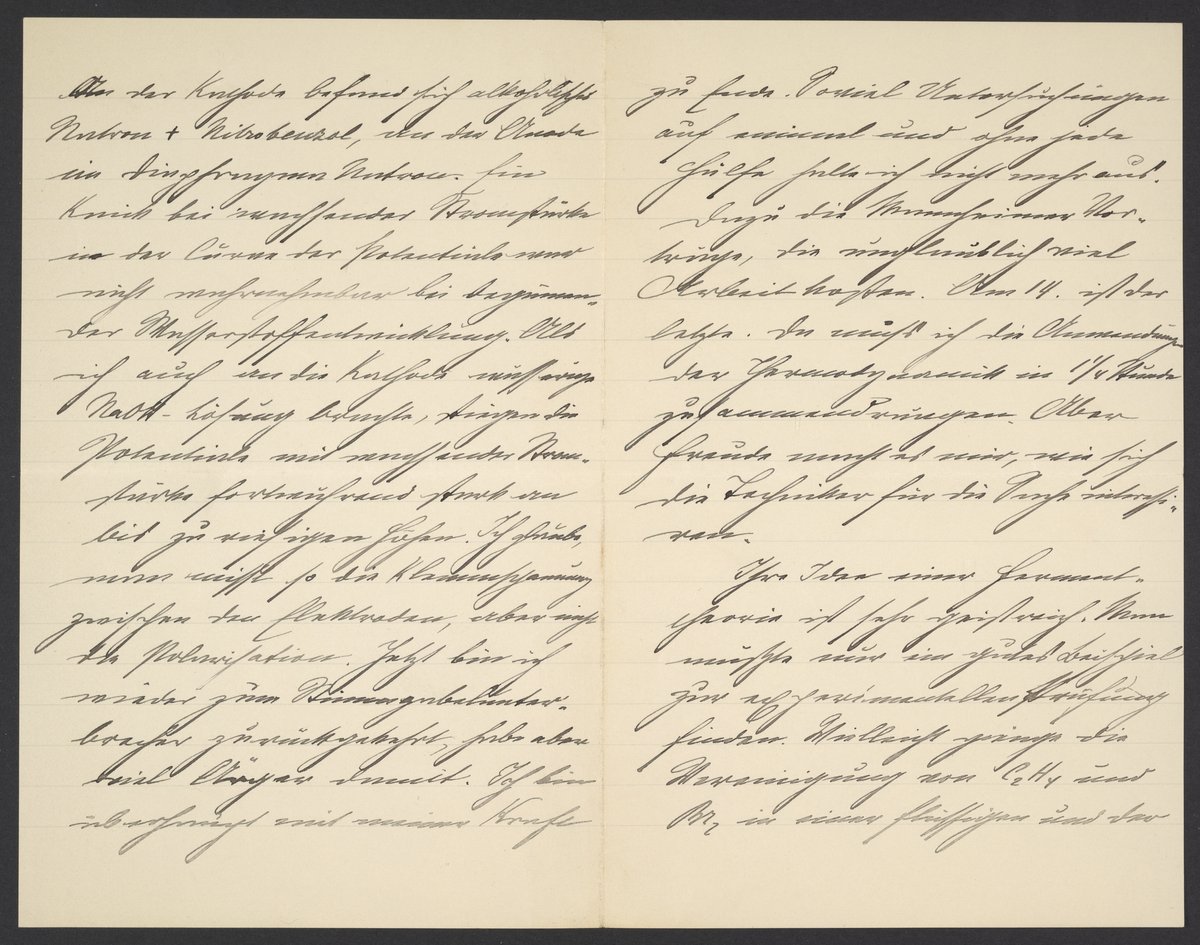 An der Kathode befand sich alkoholisches
Natron + Nitrobenzol, an der Anode
im Diaphragma Natron. Ein
Knick bei wachsender Stromstärke
in der Curve der Potentiale war
nicht wahrnehmbar bei beginnen-
der Wasserstoffentwicklung. Als
ich auch an die Kathode wässerige
NaOH-Lösung brachte, stiegen die
Potentiale mit wachsender Strom-
stärke fortwährend stark an
bis zu riesigen Höhen. Ich glaube,
man misst so die Klemmspannung
zwischen den Elektroden, aber nicht
die Polarisation. Jetzt bin ich
wieder zum Stimmgabelunter-
brecher zurückgekehrt, habe aber
viel Ärger damit. Ich bin
überhaupt mit meiner Kraft
zu Ende. Soviel Untersuchungen
auf einmal und ohne jede
Hülfe halte ich nicht mehr aus.
Dazu die Mannheimer Vor-
träge, die unglaublich viel
Arbeit kosten. Am 14. ist der
letzte. Da muss ich die Anwendung
der Thermodynamik in 1 1/4 Stunde
zusammendrungen. Aber
Freude macht es mir, wie sich
die Techniker für die Sache interessi-
ren.
Ihre Idee einer Ferment-
theorie ist sehr geistreich. Man
müsste nur ein gutes Beispiel
zur experimentellen Prüfung
finden. Vielleicht ginge die
Vereinigung von C2H4 und
Br2 in einer flüssigen und der